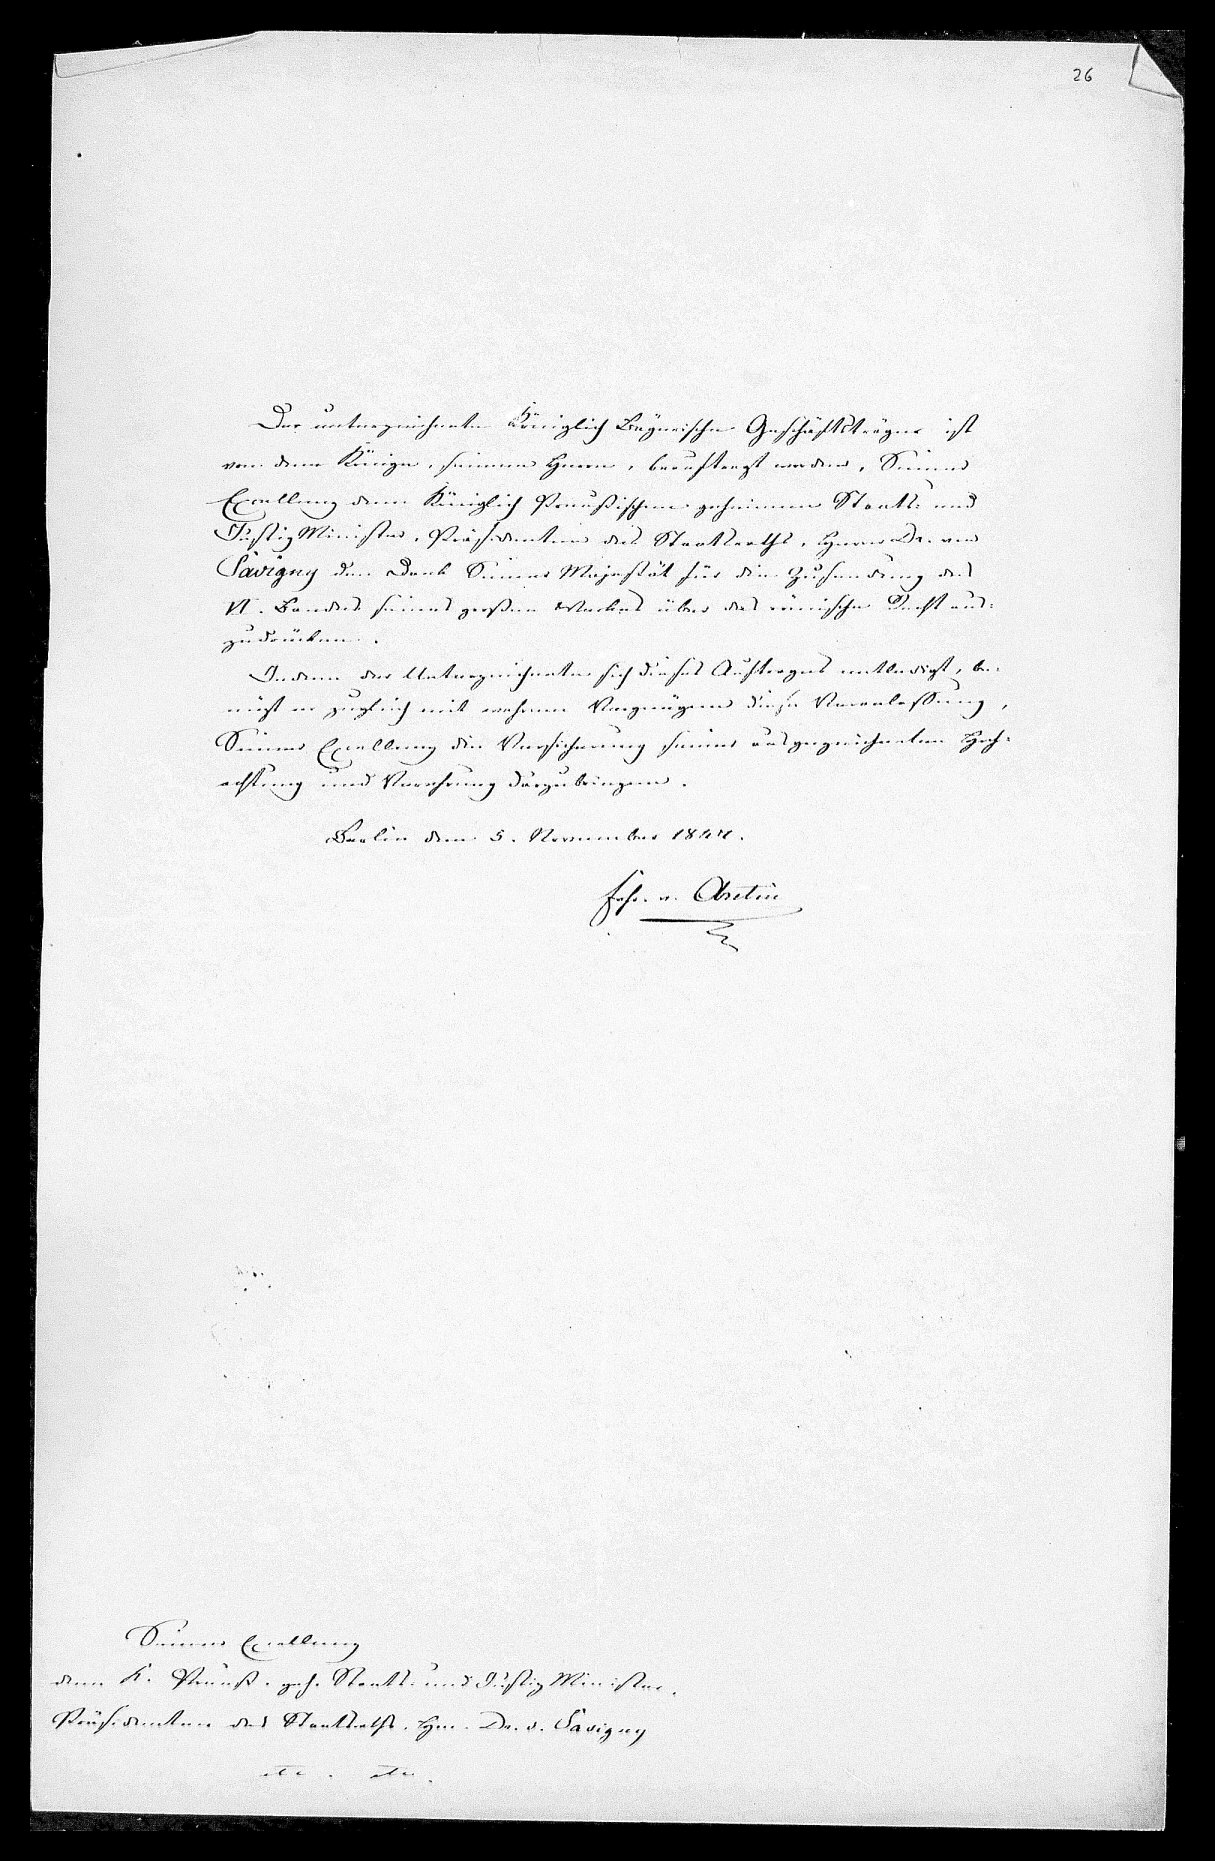 26
Der unterzeichnete Königlich Bayerische Geschäftsträger ist
von dem Könige, seinem Herrn, beauftragt worden, Seiner
Excellenz dem Königlich Preußischen geheimen Staats- und
Justiz Minister, Präsidenten des Staatsraths, Herrn Dr. von
Savigny den Dank Seiner Majestät für die Zusendung des
VI. Bandes seines großen Werkes über das römische Recht aus-
zudrücken.
Indem der Unterzeichnete sich dieses Auftrages entledigt, be-
nützt er zugleich mit wahrem Vergnügen diese Veranlassung,
Seiner Excellenz die Versicherung seiner ausgezeichneten Hoch-
achtung und Verehrung darzubringen.
Berlin den 5. November 1847.
Frhr. v. Aretin
Seiner Excellenz
dem K. Preuß. geh. Staats- und Justiz Minister,
Präsidenten des Staatsraths, Hrn. Dr. v. Savigny
etc. etc.